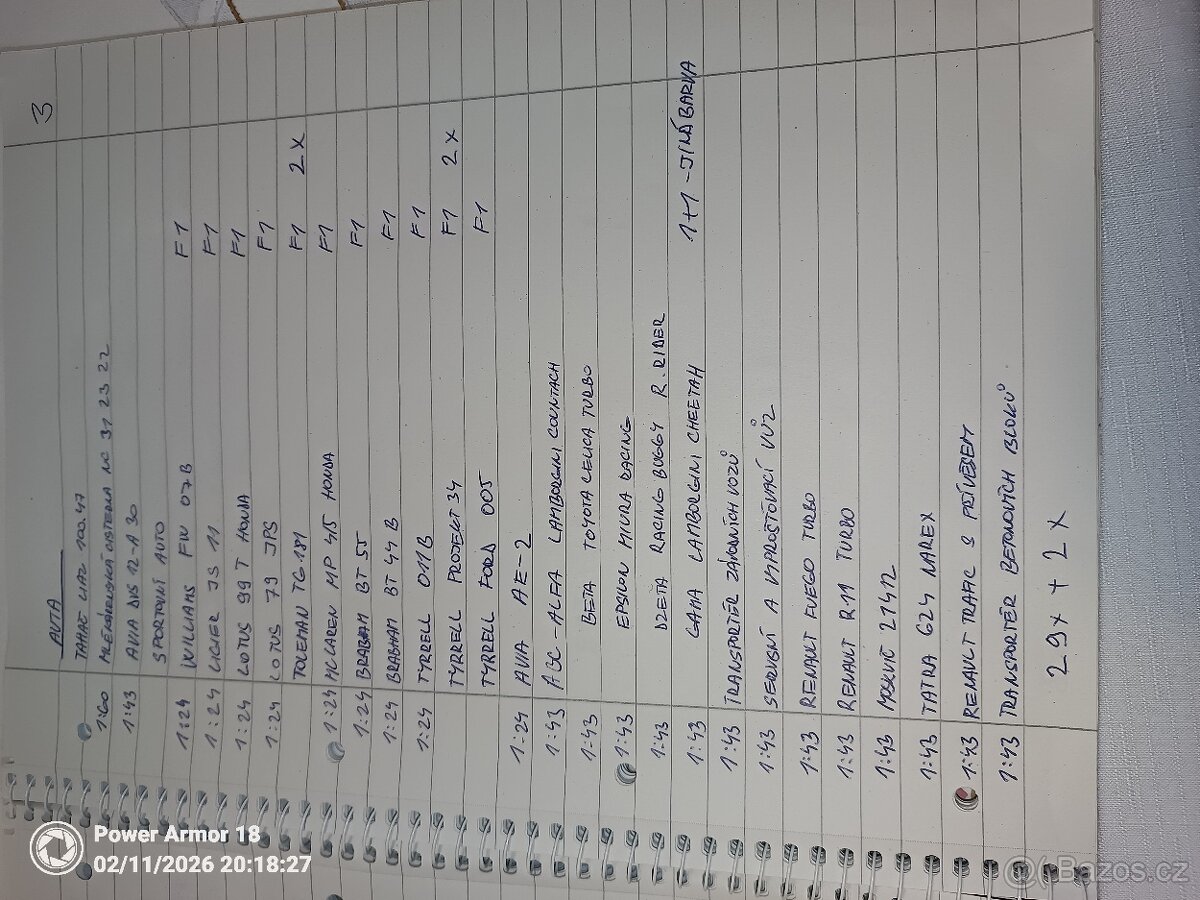 3
AUTA
TAHAČ LIAZ 100.47
1:60 MLÉKÁRENSKÁ CISTERNA NC 31 23 22
1:43 AVIA DVS 12-A 30
SPORTOVNÍ AUTO
1:24 WILLIAMS FW 07B F1
1:24 LIGIER JS 11 F1
1:24 LOTUS 99 T HONDA F1
1:24 LOTUS 79 JPS F1
TOLEMAN TG.181 F1 2X
1:24 MCLAREN MP 4/5 HONDA F1
1:24 BRABHAM BT 55 F1
1:24 BRABHAM BT 44 B F1
1:24 TYRRELL 011B F1
TYRRELL PROJEKT 34 F1 2X
TYRRELL FORD 005 F1
1:24 AVIA AE-2
1:43 ABC-ALFA LAMBORGINI COUNTACH
1:43 BETA TOYOTA CELICA TURBO
1:43 EPSION MIURA RACING
1:43 DZETA RACING BUGGY R.RIDER
1:43 GAMA LAMBORGINI CHEETAH 1+1-JINÁ BARVA
1:43 TRANSPORTÉR ZÁVODNÍCH VOZŮ
1:43 SERVISNÍ A VYPROŠŤOVACÍ VŮZ
1:43 RENAULT FUEGO TURBO
1:43 RENAULT R.11 TURBO
1:43 MOSKVIČ 21412
1:43 TATRA 624 NAREX
1:43 RENAULT TRAFIC S PŘÍVĚSEM
1:43 TRANSPORTÉR BETONOVÝCH BLOKŮ
29x + 2x
Power Armor 18
02/11/2026 20:18:27
Bazos.cz